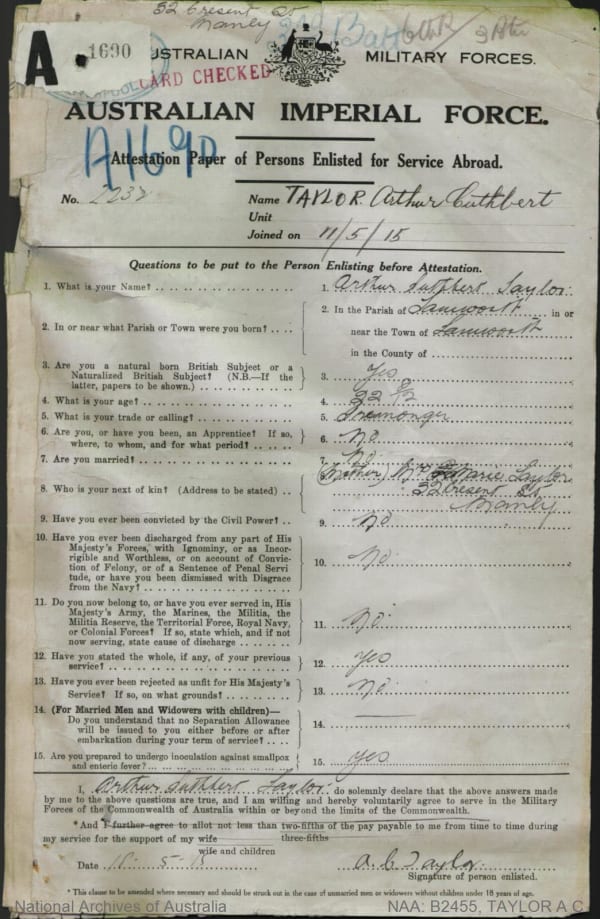 32 Cresent St
Manly
A 1690
AUSTRALIAN MILITARY FORCES.
CARD CHECKED
AUSTRALIAN IMPERIAL FORCE.
A1690
Attestation Paper of Persons Enlisted for Service Abroad.
No. Name TAYLOR Arthur Cuthbert
Unit
Joined on 11/5/15
Questions to be put to the Person Enlisting before Attestation.
1. What is your Name? 1. Arthur Cuthbert Taylor
2. In or near what Parish or Town were you born? 2. In the Parish of Tamworth in or
near the Town of Tamworth
in the County of
3. Are you a natural born British Subject or a
Naturalized British Subject? (N.B.—If the
latter, papers to be shown.) 3. Yes
4. What is your age? 4. 22
5. What is your trade or calling? 5. Ironmonger
6. Are you, or have you been, an Apprentice? If so,
where, to whom, and for what period? 6. No
7. Are you married? 7. No
8. Who is your next of kin? (Address to be stated) 8. (Mother) Marie Taylor
32 Cresent St
Manly
9. Have you ever been convicted by the Civil Power? 9. No
10. Have you ever been discharged from any part of His
Majesty's Forces, with Ignominy, or as Incor-
rigible and Worthless, or on account of Convic-
tion of Felony, or of a Sentence of Penal Servi
tude, or have you been dismissed with Disgrace
from the Navy? 10. No
11. Do you now belong to, or have you ever served in, His
Majesty's Army, the Marines, the Militia, the
Militia Reserve, the Territorial Force, Royal Navy,
or Colonial Forces? If so, state which, and if not
now serving, state cause of discharge 11. No
12. Have you stated the whole, if any, of your previous
service? 12. Yes
13. Have you ever been rejected as unfit for His Majesty's
Service? If so, on what grounds? 13. No
14. (For Married Men and Widowers with children)—
Do you understand that no Separation Allowance
will be issued to you either before or after
embarkation during your term of service? 14.
15. Are you prepared to undergo inoculation against smallpox
and enteric fever? 15. Yes
I, Arthur Cuthbert Taylor do solemnly declare that the above answers made
by me to the above questions are true, and I am willing and hereby voluntarily agree to serve in the Military
Forces of the Commonwealth of Australia within or beyond the limits of the Commonwealth.
*And I further agree to allot not less than two-fifths of the pay payable to me from time to time during
three-fifths
my service for the support of my wife
wife and children
Date 5. 15 A. C. Taylor.
Signature of person enlisted.
* This clause to be amended where necessary and should be struck out in the case of unmarried men or widowers without children under 18 years of age.
National Archives of Australia NAA: B2455, TAYLOR A C